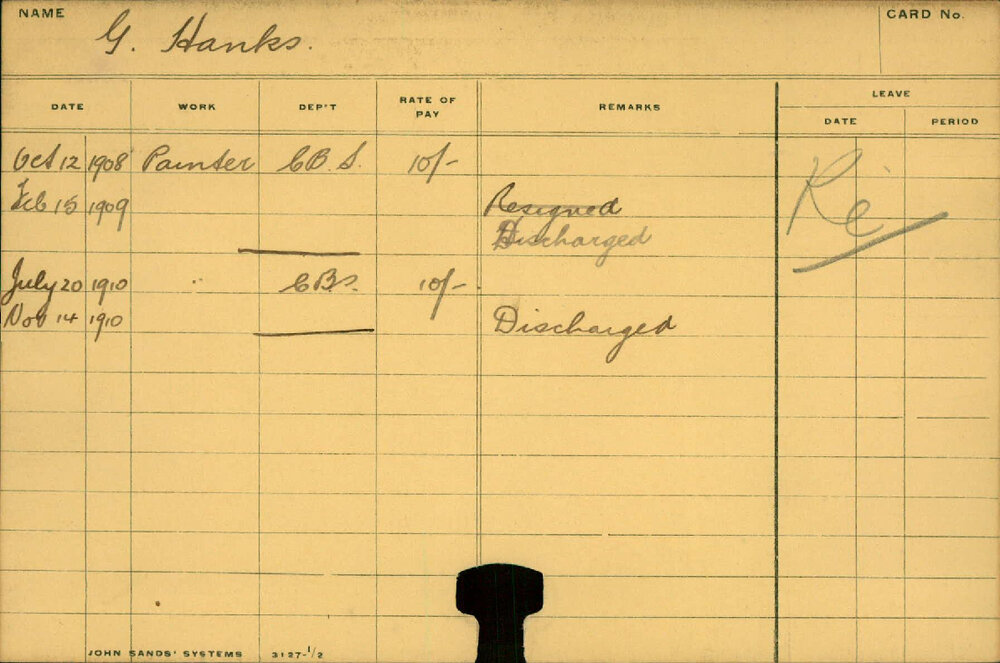 NAME G. Hanks. CARD No.
LEAVE
DATE WORK DEP'T RATE OF PAY REMARKS DATE PERIOD
Oct 12 1908 Painter C.B.S. 10/-
Re
Feb 15 1909 Resigned
Discharged
July 20 1910 " C.B.S. 10/-
Nov 14 1910 Discharged
JOHN SANDS' SYSTEMS 3127-1/2